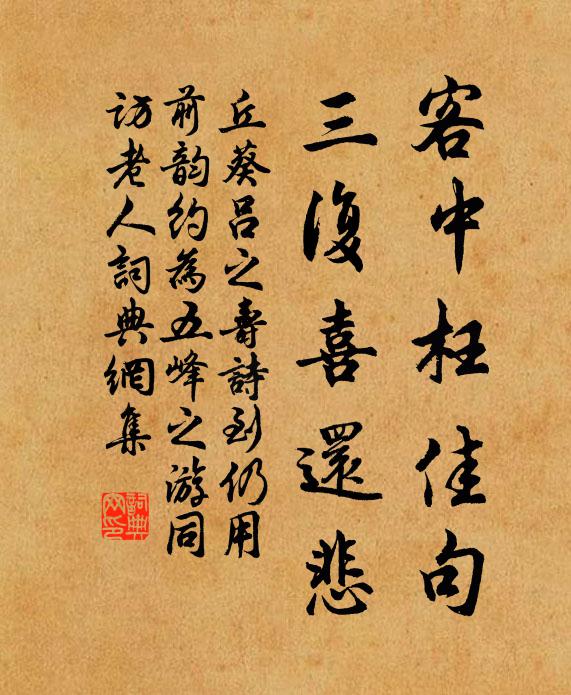 客中枉佳句
三復喜還悲
丘葵呂之壽詩到仍用
前韵約為五峰之游同
訪老人詞典網集
詞典網印